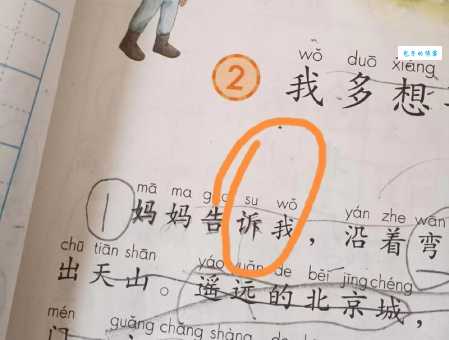 wǒ duō xiǎng
② 我多想
mā ma gào su wǒ yán zhe wān
妈妈告诉我，沿着弯
chū tiān shān yáo yuǎn de běi jīng chéng
出天山。遥远的北京城，
mén guǎng chǎng shàng
门